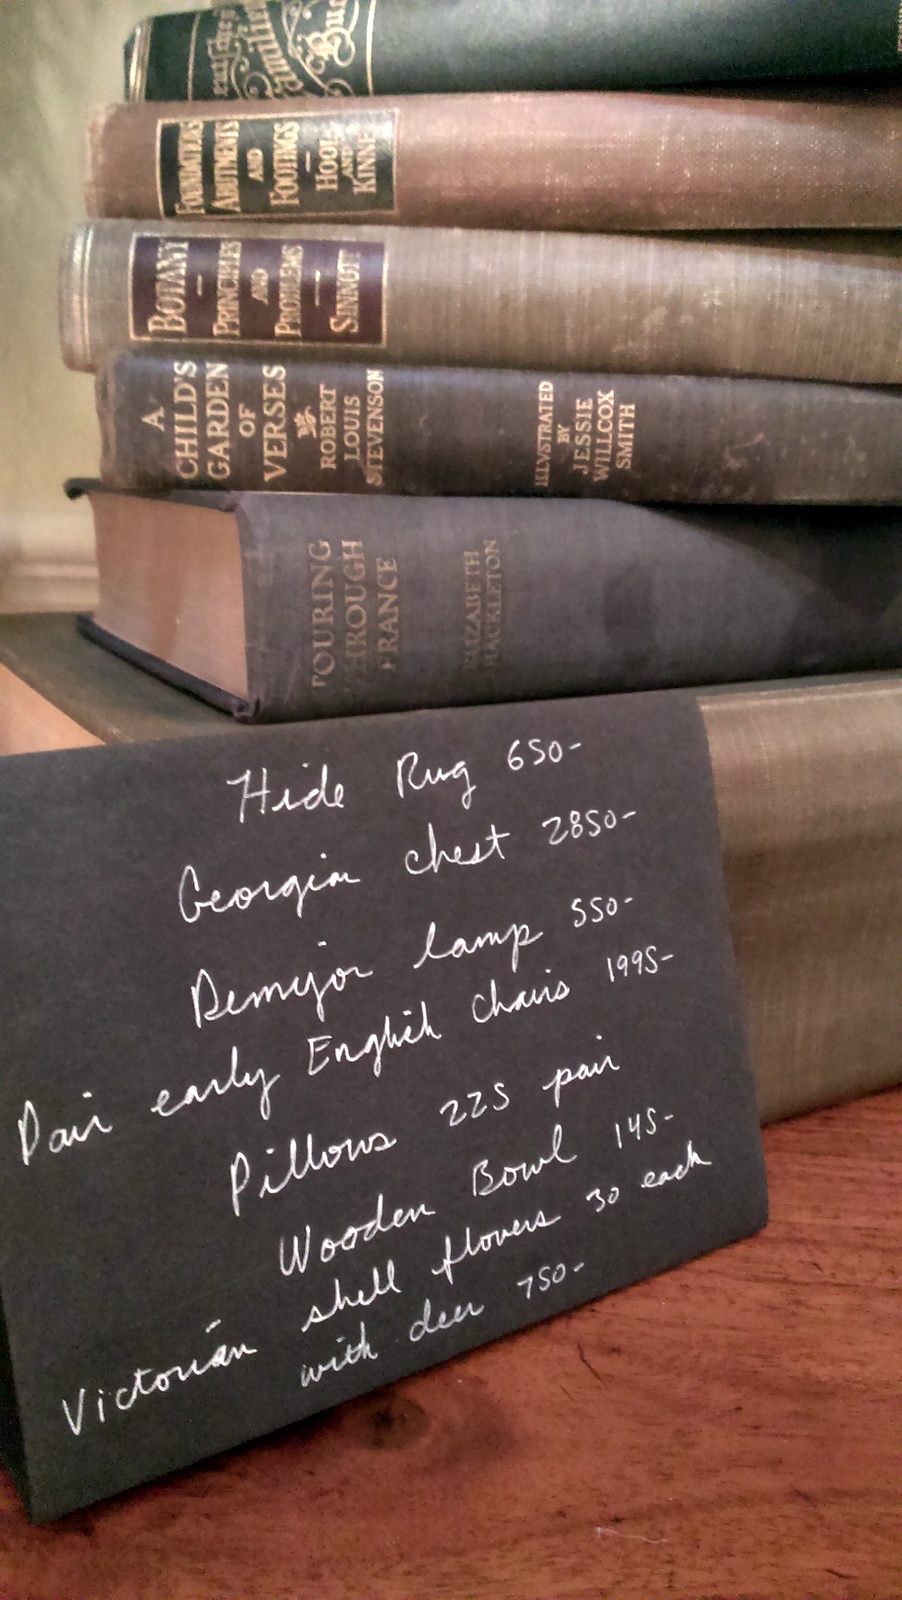 Familiar
FOUNDATIONS
ABUTMENTS
AND
FOOTINGS
HOOL
AND
KINNE
BOTANY
PRINCIPLES
AND
PROBLEMS
SINNOTT
A
CHILD'S
GARDEN
OF
VERSES
ROBERT
LOUIS
STEVENSON
ILLVSTRATED
BY
JESSIE
WILLCOX
SMITH
TOURING
THROUGH
FRANCE
ELIZABETH
SHACKLETON
Hide Rug 650-
Georgian chest 2850-
Demijor lamp 550-
Pair early English chairs 1995-
Pillows 225 pair
Wooden Bowl 145-
Victorian shell flowers 30 each
with deer 750-